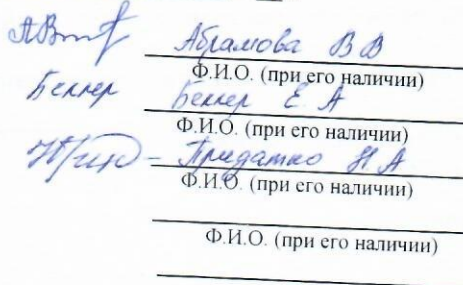 Абрамова В В
Ф.И.О. (при его наличии)
Беккер Беккер Е. А
Ф.И.О. (при его наличии)
Придатко Н. А
Ф.И.О. (при его наличии)
Ф.И.О. (при его наличии)